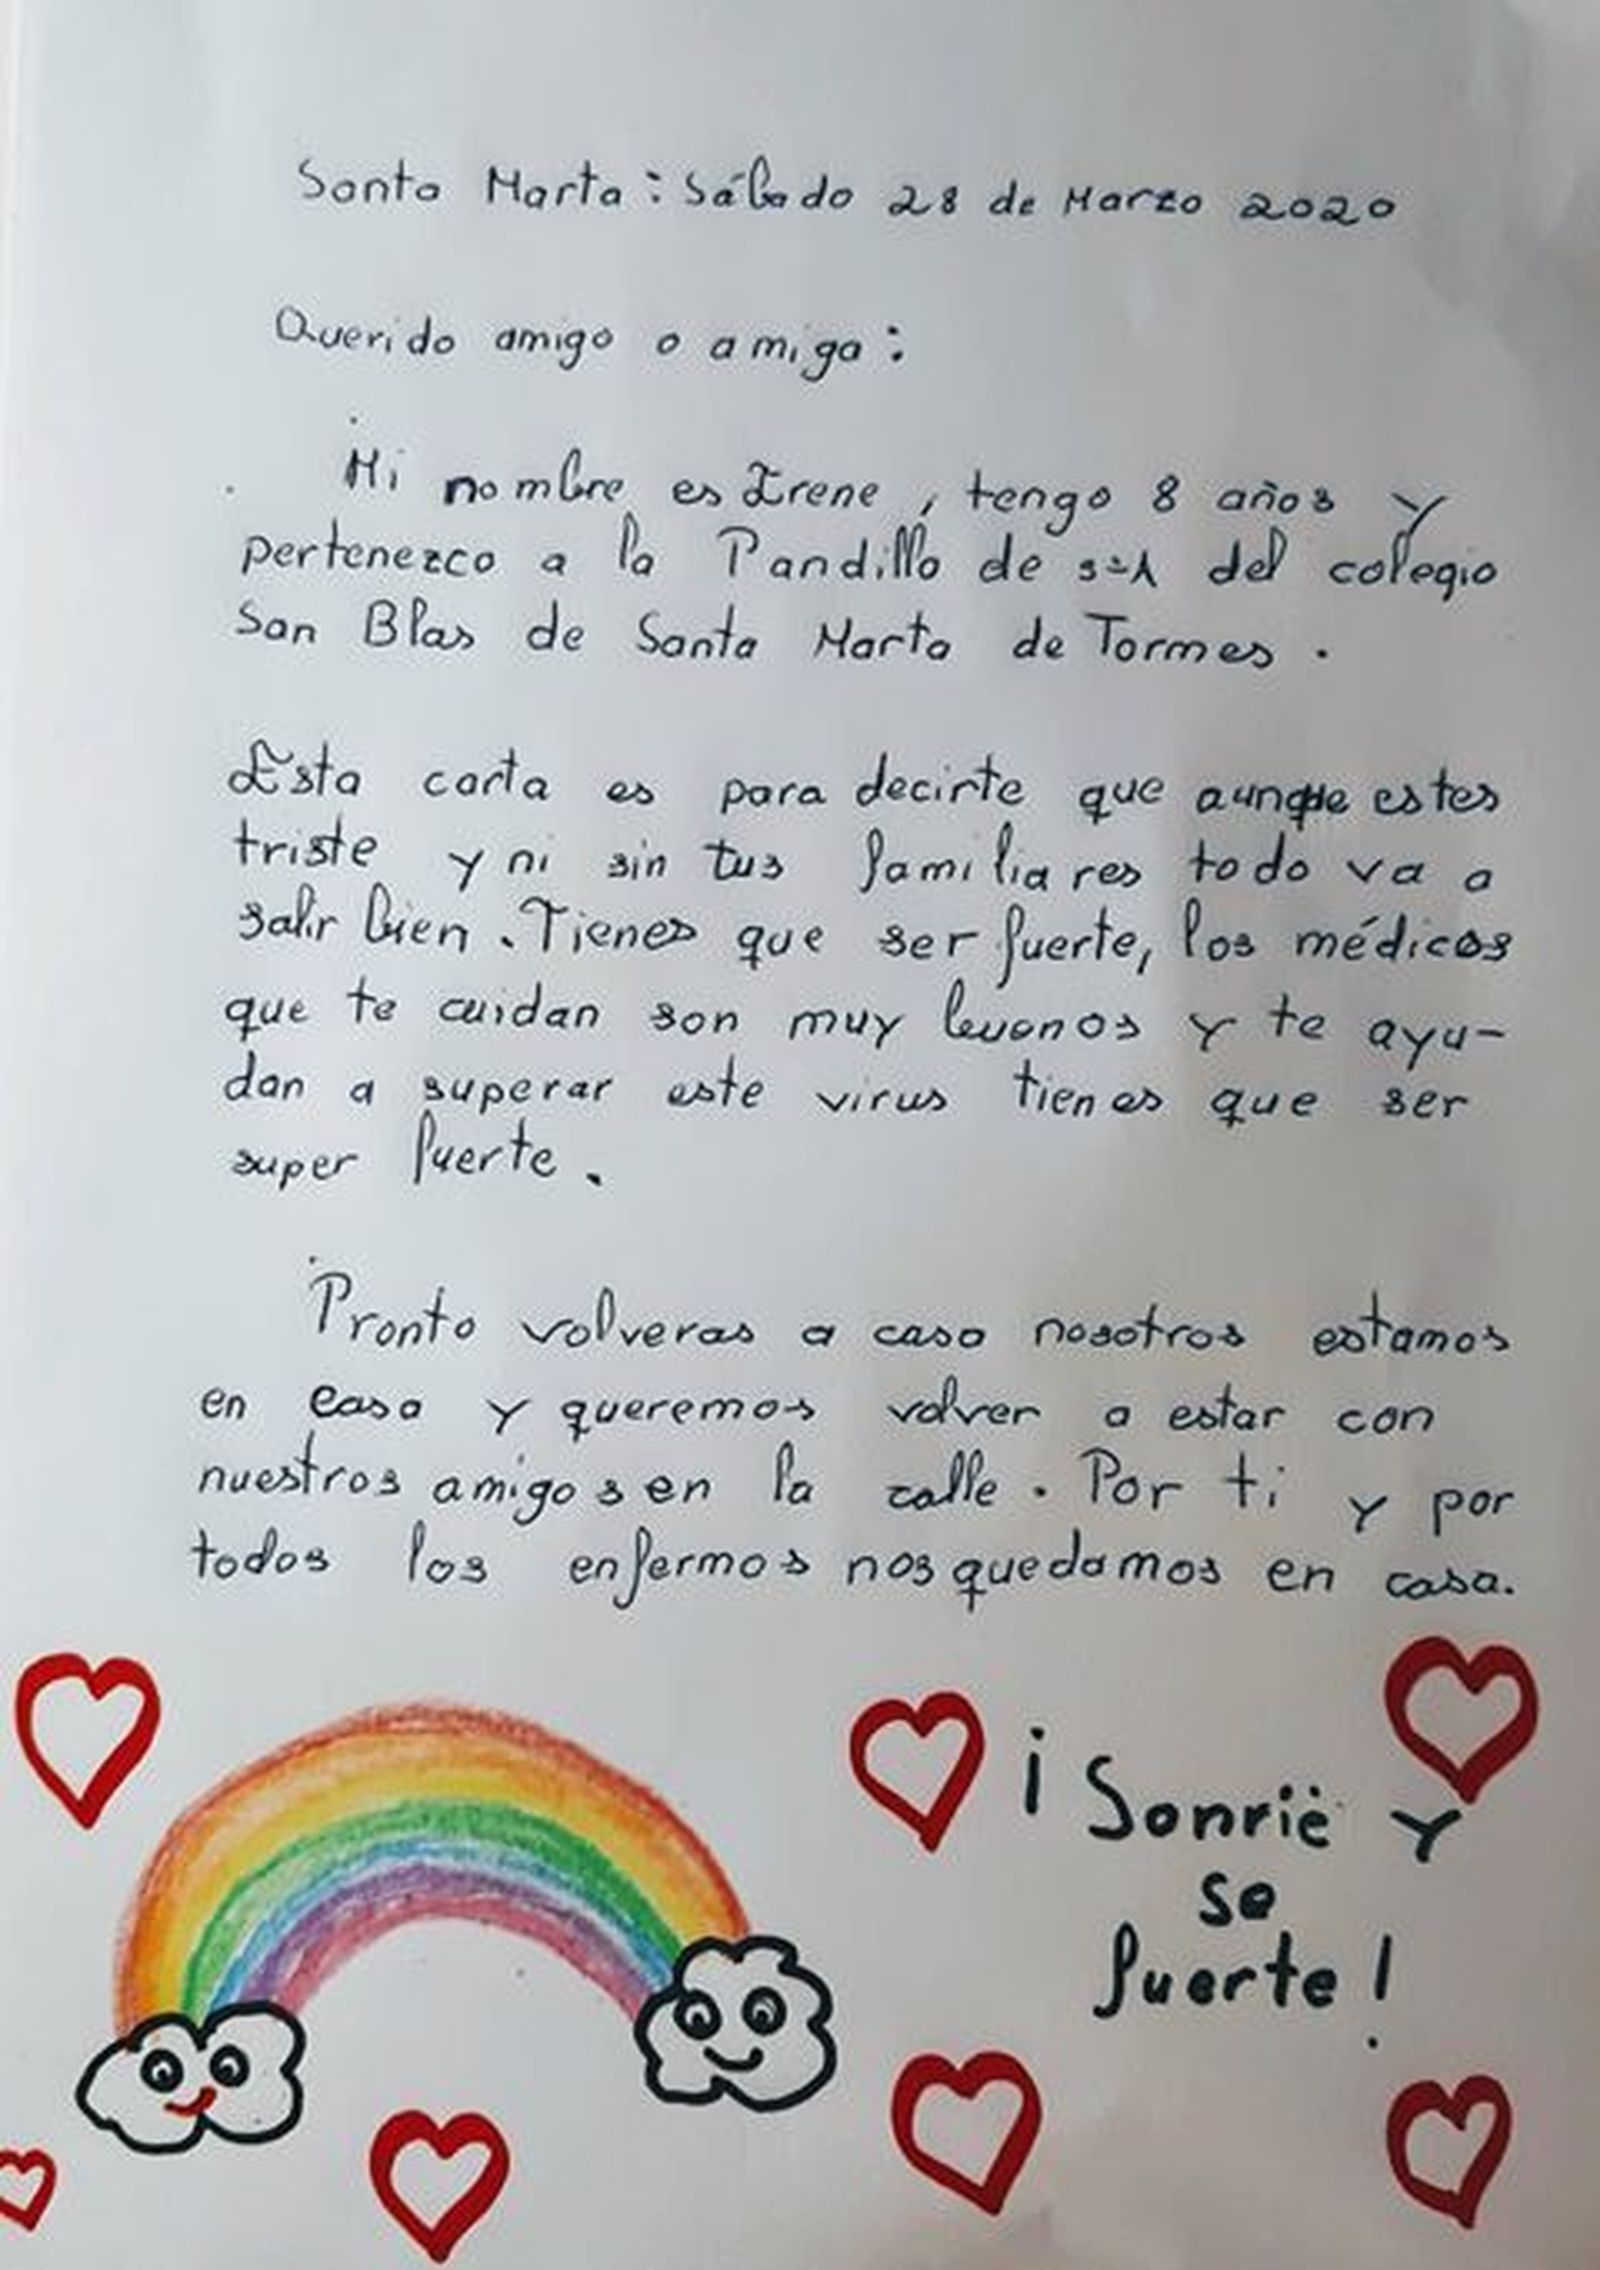 Santa Marta: Sábado 28 de Marzo 2020
Querido amigo o amiga:
Mi nombre es Irene, tengo 8 años y
pertenezco a la Pandilla de del colegio
San Blas de Santa Marta de Tormes.
Esta carta es para decirte que aunque estes
triste y ni sin tus familiares todo va a
salir bien. Tienes que ser fuerte, los médicos
que te cuidan son muy buenos y te ayu-
dan a superar este virus tienes que ser
super fuerte.
Pronto volveras a casa nosotros estamos
en casa y queremos volver a estar con
nuestros amigos en la calle. Por ti y por
todos los enfermos nos quedamos en casa.
¡Sonrië y
se
fuerte!